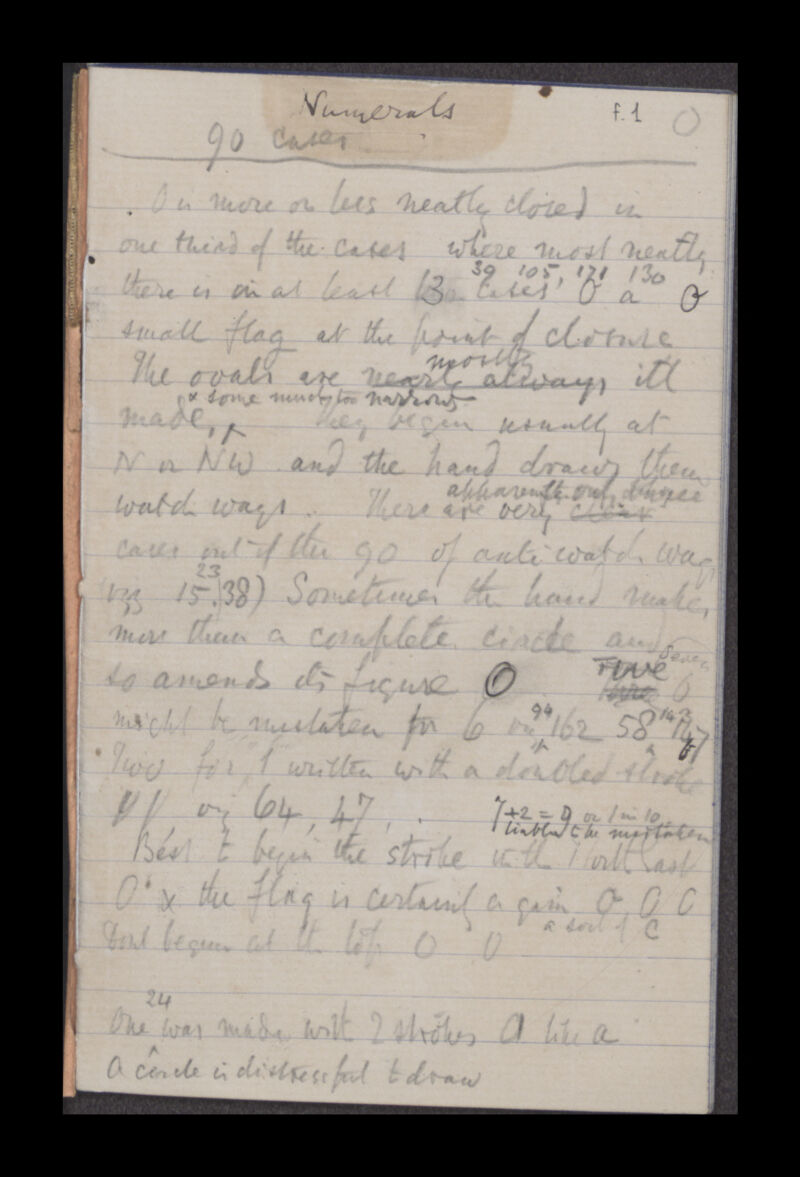 Numerals f.1 0
90 cases
O is more or less neatly closed in
one third of the cases where most neatly
39 105, 171 130
there is in at least 13 cases, O a O
small flag at the point of closure
mostly
The ovals are nearly always ill
& some much too narrow
made, They begin usually at
N or NW and the hand draws them
apparently only three
watch ways. There are very
cases out of the 90 of anti watch way
23
viz 15. 38) Sometimes the hand makes
more than a complete circle and
Seven
so amends its figure O Five 6
94 142
might be mistaken for 6 viz 162 58 147
Two for 1 written with a doubled stroke
viz 64, 47, 7+2 = 9 or 1 in 10
liable to be mistaken
Best to begin the stroke in the North East
O x the flag is certainly a gain O, O O
Dont begin at the top O O a sort of C
24
One was made with 2 strokes a like a
A circle is distressful to draw